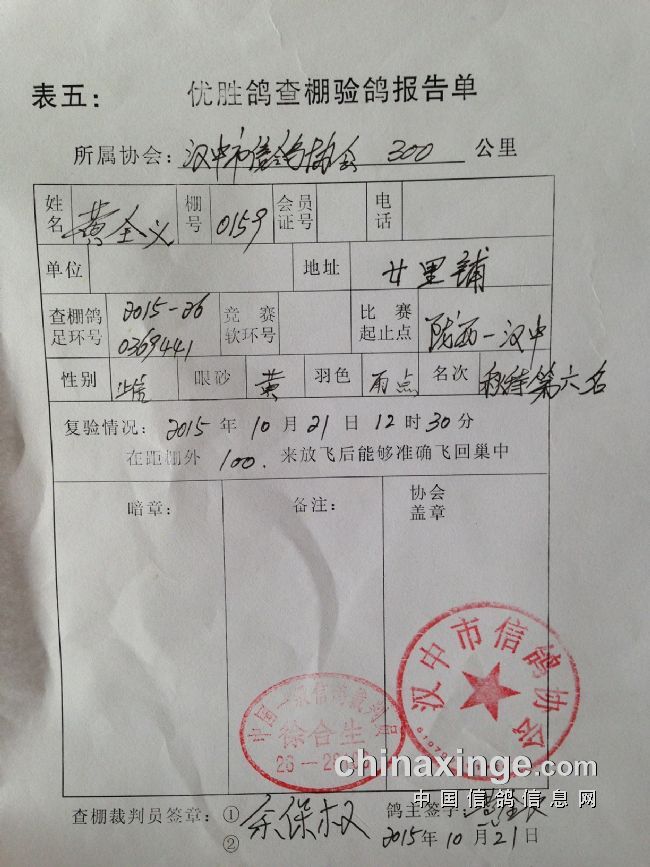 表五： 优胜鸽查棚验鸽报告单
所属协会：汉中市信鸽协会 300 公里
姓名 黄全义 棚号 0159 会员证号 电话
单位 地址 廿里铺
查棚鸽足环号 2015-26 0369441 竞赛软环号 比赛起止点 陇西-汉中
性别 雌 眼砂 黄 羽色 雨点 名次 秋特第六名
复验情况：2015 年 10 月 21 日 12 时 30 分
在距棚外 100. 来放飞后能够准确飞回巢中
暗章： 备注： 协会盖章
汉中市信鸽协会
中国一级信鸽裁判员
徐合生
chinaxinge.com
中国信鸽信息网
查棚裁判员签章：① 余保权 鸽主签字：
② 2015年 10 月 21 日